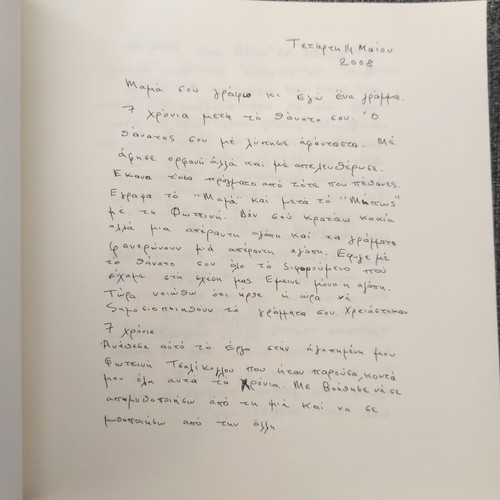 Τετάρτη 14 Μαίου
2008
Μαμά σού γράφω κι εγώ ένα γράμμα.
7 χρόνια μετά το θάνατο σου. Ό
θάνατος σου μέ λύπησε αφάνταστα. Μέ
άφησε ορφανή άλλά καί μέ απελευθέρωσε.
Έκανα τόσα πράγματα από τότε που πέθανες.
Έγραψα τό "Μαμά" καί μετά τό "Μήπως"
μέ τη Φωτεινή. Δέν σού κρατάω κακία
αλλά μια απέραντη αγάπη καί τα γράμματα
φανερώνουν μιά απέραντη αγάπη. Έφυγε μέ
τό θάνατο σου όλο τό διφορούμενο πού
είχαμε στη σχέση μας. Έμεινε μόνο η αγάπη.
Τώρα νοιώθω ότι ήρθε ή ώρα νά
δημοσιοποιηθούν τά γράμματα σου. Χρειάστηκαν
7 χρόνια
Ανάθεσα αυτό τό έργο στήν αγαπημένη μου
Φωτεινή Τσαλίκογλου που ήταν παρούσα, κοντά
μου όλα αυτά τα χρόνια. Με βοήθησε νά σε
απομυθοποιήσω από τη μιά καί να σε
μυθοποιήσω από την άλλη.